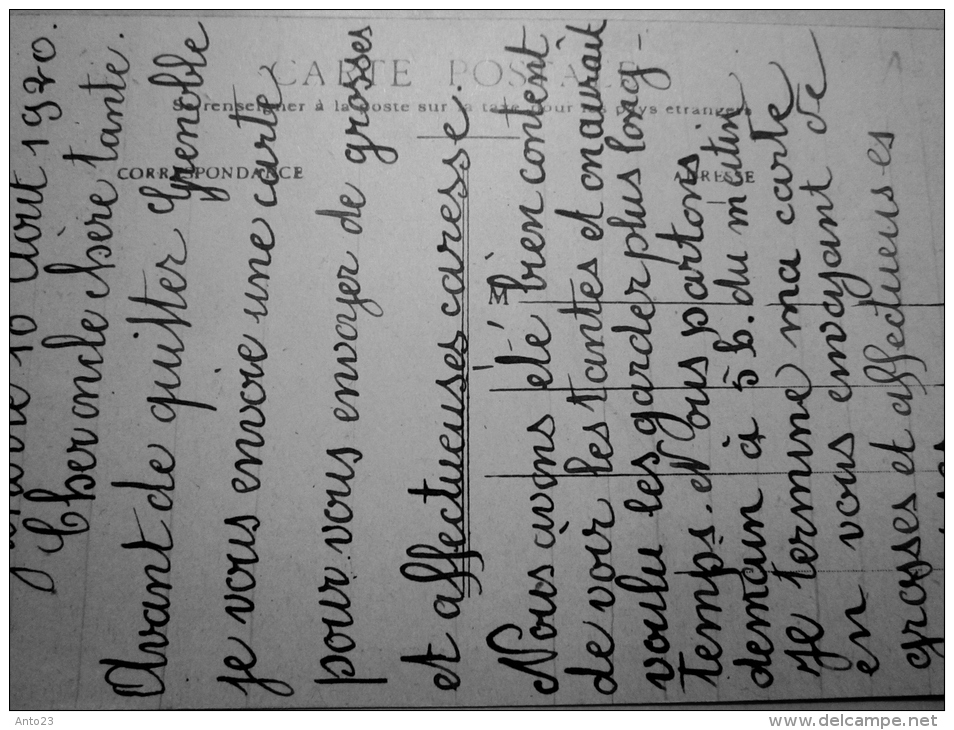 10 Août 1920.
Cher oncle chère tante.
Avant de quitter Grenoble
je vous envoie une carte
pour vous envoyer de grosses
et affectueuses caresse.
Nous avons été bien content
de voir les tantes et on aurait
voulu les garder plus long-
temps. Nous partons
demain à 5 h. du matin
Je termine ma carte
en vous envoyant de
grosses et affectueuses
CARTE POSTALE
Se renseigner à la poste sur la taxe pour les pays étrangers
CORRESPONDANCE
ADRESSE
M
Anto23
www.delcampe.net